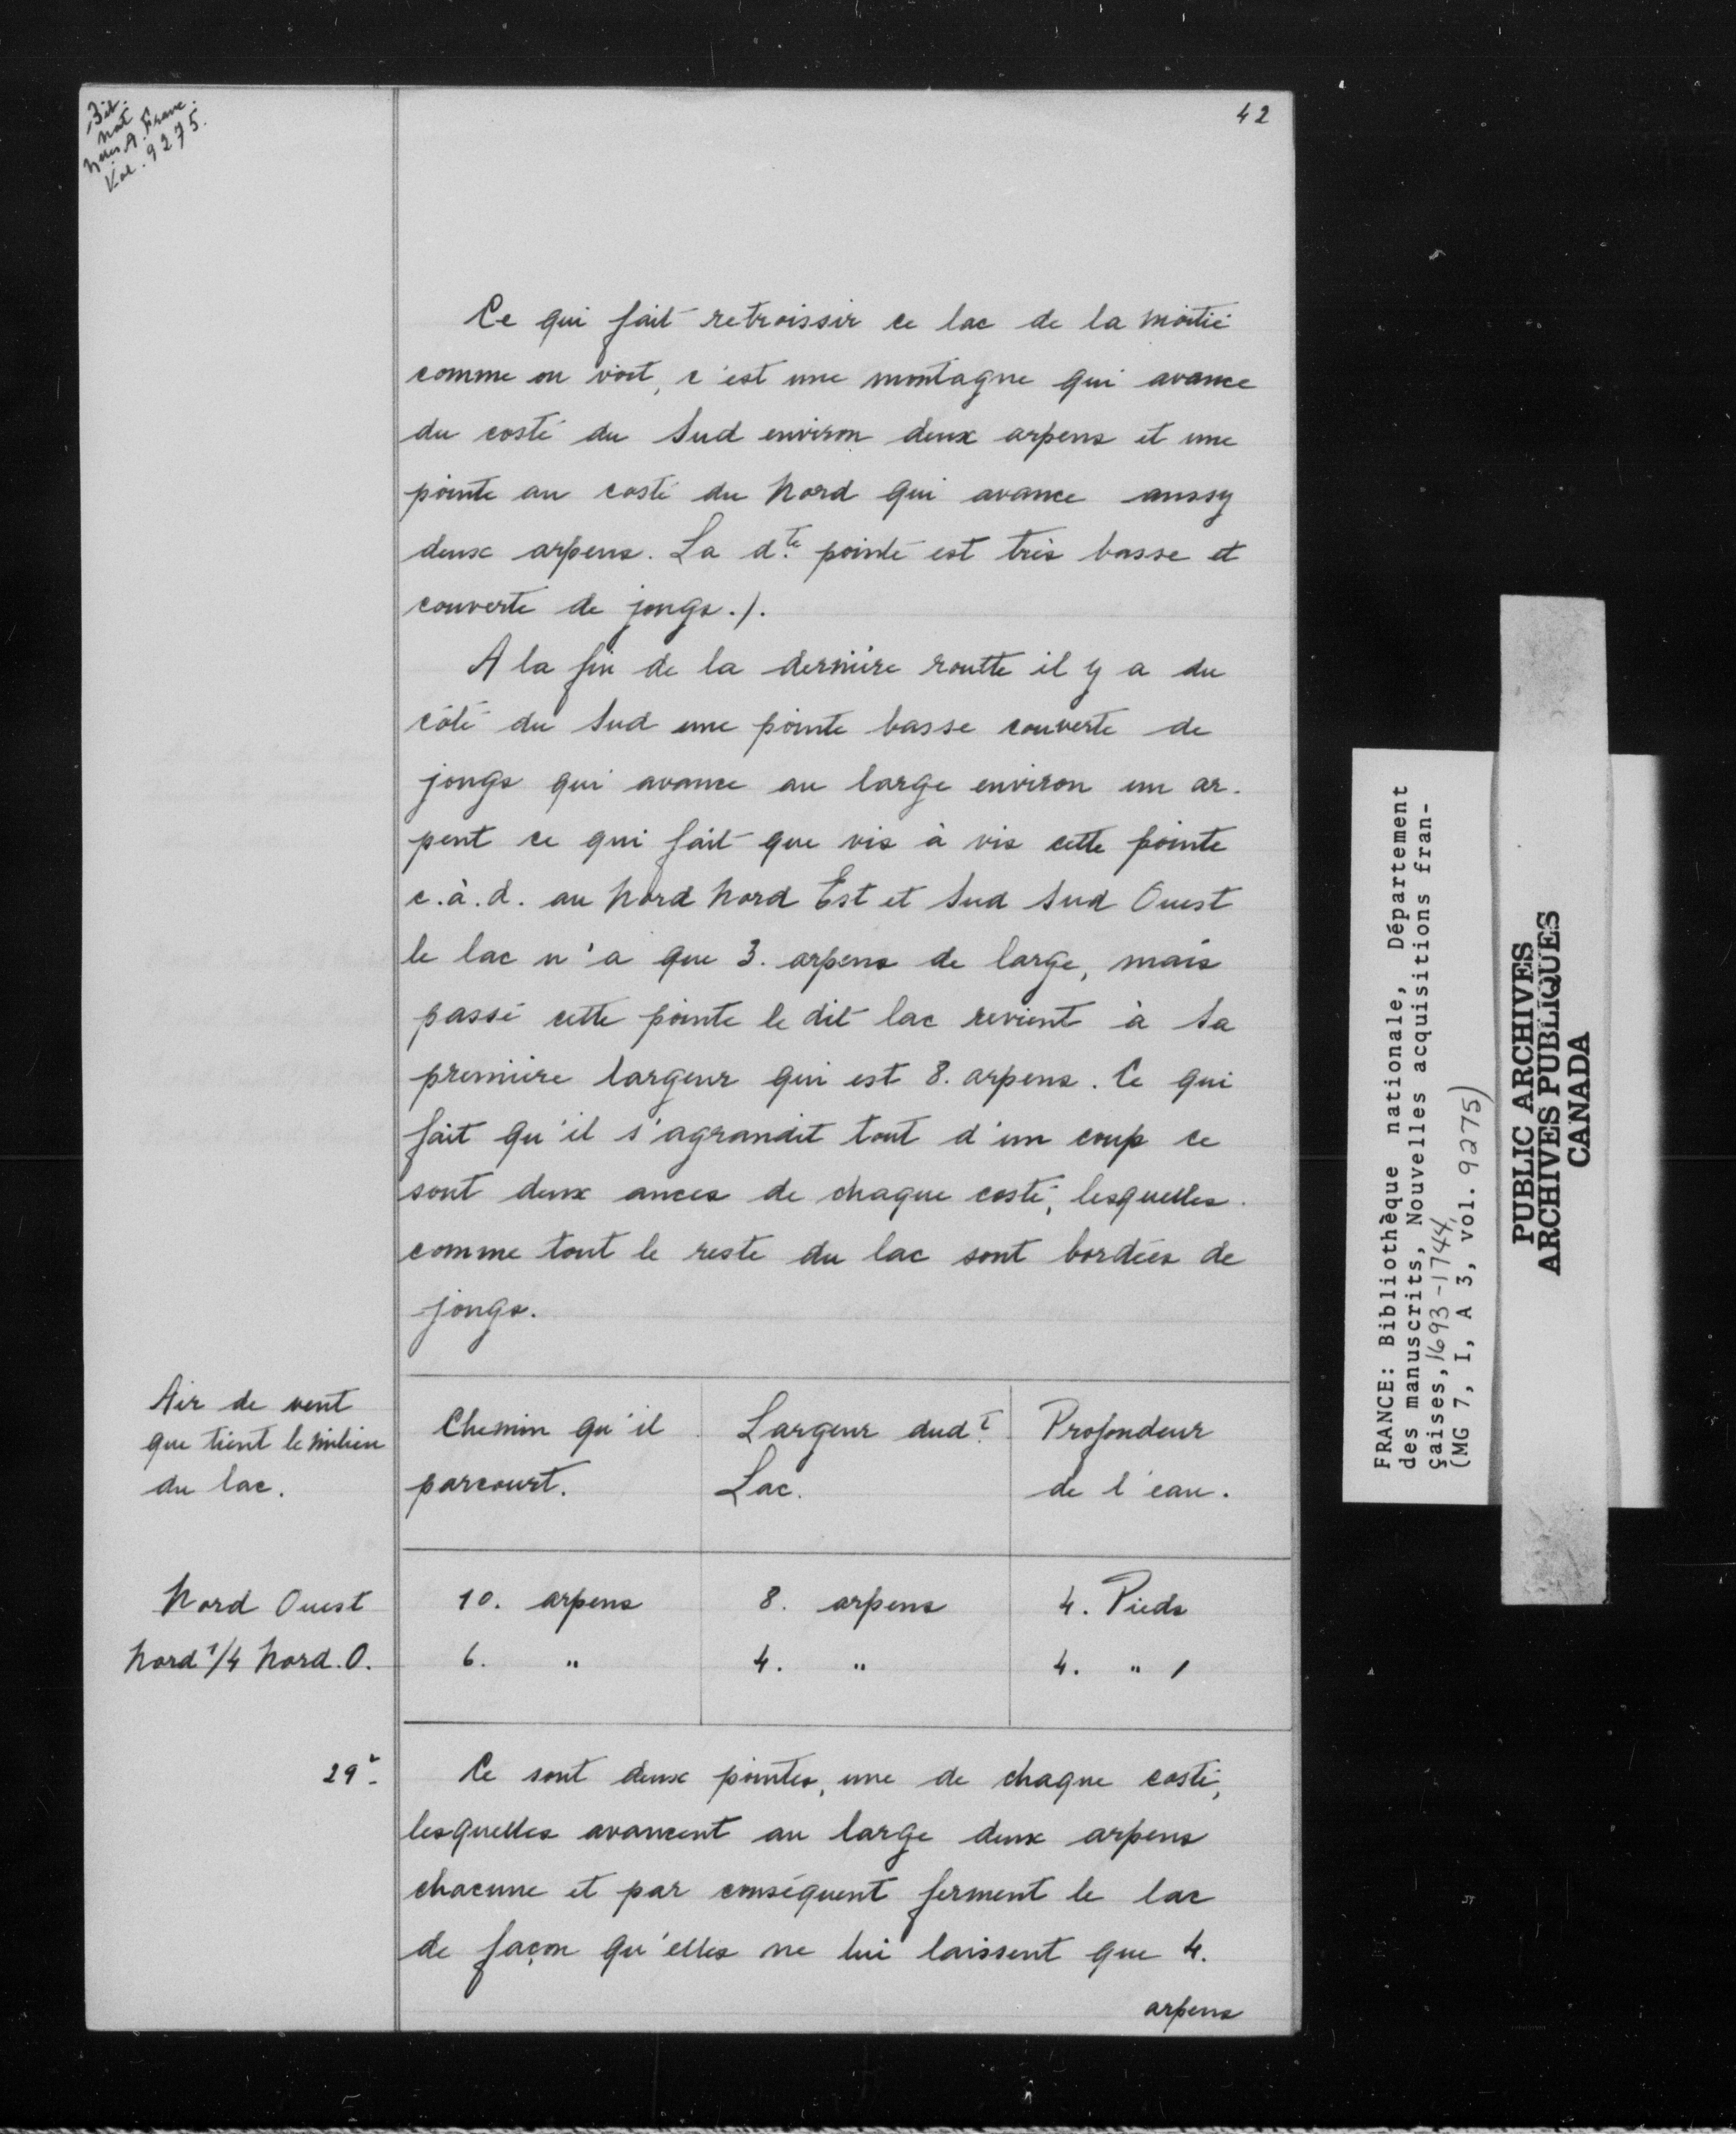 Bib.
Nat
Nles A. Franc.
Vol. 9275.
42
Ce qui fait retroissir ce lac de la moitié
comme on voit, c'est une montagne qui avance
du costé du Sud environ deux arpens et une
pointe au costé du Nord qui avance aussy
deux arpens. La d.te pointe est très basse et
couverte de jongs./.
A la fin de la dernière routte il y a du
côté du Sud une pointe basse couverte de
jongs qui avance au large environ un ar-
pent ce qui fait que vis à vis cette pointe
c.à.d. au Nord Nord Est et Sud Sud Ouest
le lac n'a que 3. arpens de large, mais
passé cette pointe le dit lac revient à sa
première largeur qui est 8. arpens. Ce qui
fait qu'il s'agrandit tout d'un coup ce
sont deux ances de chaque costé, lesquelles
comme tout le reste du lac sont bordées de
jongs.
Air de vent
que tient le milieu
du lac.
Chemin qu'il
parcourt.
Largeur dud.t
Lac.
Profondeur
de l'eau.
Nord Ouest 10. arpens 8. arpens 4. Pieds
Nord 1/4 Nord. O. 6. " 4. " 4. " /
29-
Ce sont deux pointes, une de chaque costé,
lesquelles avancent au large deux arpens
chacune et par conséquent ferment le lac
de façon qu'elles ne lui laissent que 4.
arpens
FRANCE: Bibliothèque nationale, Département
des manuscrits, Nouvelles acquisitions fran-
çaises, 1693-1744
(MG 7, I, A 3, vol. 9275)
PUBLIC ARCHIVES
ARCHIVES PUBLIQUES
CANADA